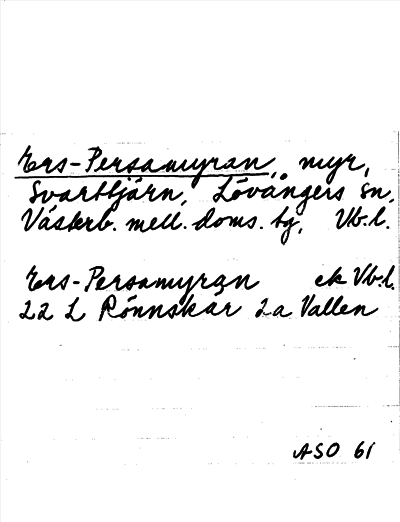 Ers-Persamyran, myr,
Svarttjärn, Lövångers sn,
Västerb. mell. doms. tg, Vb.l.
Ers-Persamyran ek Vb.l.
22 L Rönnskär 2a Vallen
ASO 61